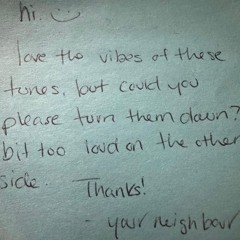 hi. :)
love the vibes of these
tunes, but could you
please turn them down?
bit too loud on the other
side. Thanks!
- your neighbour